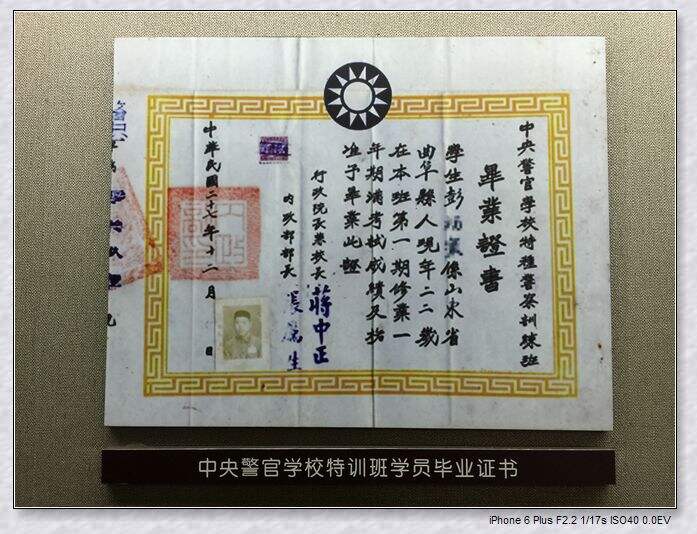 中央警官學校特種警察訓練班
畢業證書
學生彭係山東省
曲阜縣人現年二二歲
在本班第一期修業一
年期滿考試成績及格
准予畢業此證
行政院長兼校長蔣中正
內政部部長張厲生
中華民國二十七年十二月 日
中央警官学校特训班学员毕业证书
iPhone 6 Plus F2.2 1/17s ISO40 0.0EV